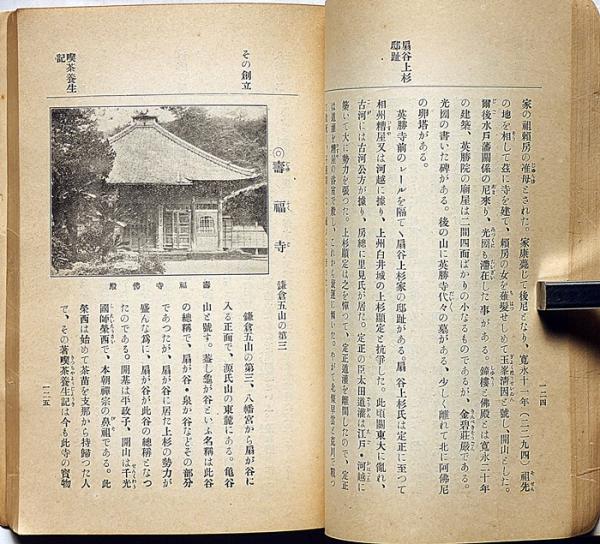 扇谷上杉
邸趾
家の祖頼房の准母とされた。家康薨じて後尼となり、寛永十一年(二二九四)祖先
の地を相して玆に寺を建て、頼房の女を薙髪せしめて玉峯清因と號し、開山とした。
爾後水戸藩關係の尼來り、光圀も滯在した事がある。鐘樓と佛殿とは寛永二十年
の建築、英勝院の廟屋は二間四面ばかりの小なるものであるが、金碧莊嚴である。
光圀の書いた碑がある。後の山に英勝寺代々の墓がある、少しく離れて北に阿佛尼
の卵塔がある。
英勝寺前のレールを隔てゝ扇谷上杉家の邸趾がある。扇谷上杉氏は定正に至つて
相州糟屋又は河越に據り、上州白井城の上杉顯定と抗爭した。此頃關東大に亂れ、
古河には古河公方が據り、房總に里見氏が居た。定正の臣太田道灌は江戸・河越に
築いて大に勢力を張つた。上杉顯定は之を憚つて、定正道灌を離間したので、定正
は道灌を糟屋の浴室で殺し、これから衰運に傾いた。
一二四
その創立
喫茶養生
記
◎壽福寺
鎌倉五山の第三
壽福寺佛殿
鎌倉五山の第三、八幡宮から扇が谷に
入る正面で、源氏山の東麓にある。亀谷
山と號す。蓋し龜が谷といふ名稱は此谷
の總稱で、扇が谷・泉か谷などその部分
であつたが、扇が谷に居た上杉の勢力が
盛んな爲に、扇が谷が此谷の總稱となつ
たのである。開基は平政子、開山は千光
國師榮西で、本朝禪宗の鼻祖である。此
榮西は始めて茶苗を支那から持歸つた人
で、その著喫茶養生記は今も此寺の寳物
一二五